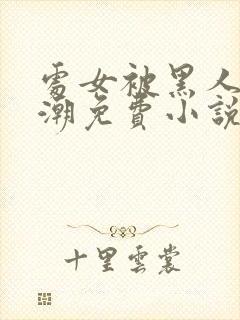 處女被黑人
潮免費小說
十里雲裳